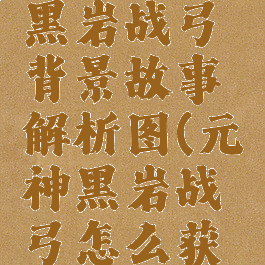 黑岩战弓
背景故事
解析图(元
神黑岩战
弓怎么获